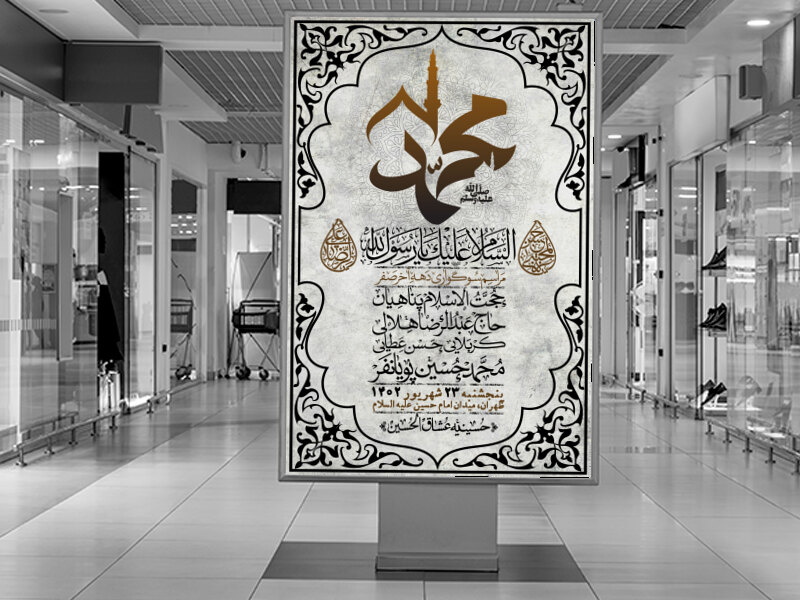 محمد
صلی الله علیه وسلم
السلام علیك یا رسول الله
مراسم سوگواری دهه آخر صفر
حجت الاسلام پناهیان
حاج عبدالرضا هلالی
کربلایی حسن عطایی
محمدحسین پویانفر
پنجشنبه ۲۳ شهریور ۱۴۰۲
طهران، میدان امام حسین علیه السلام
حسینیه عشاق الحسین